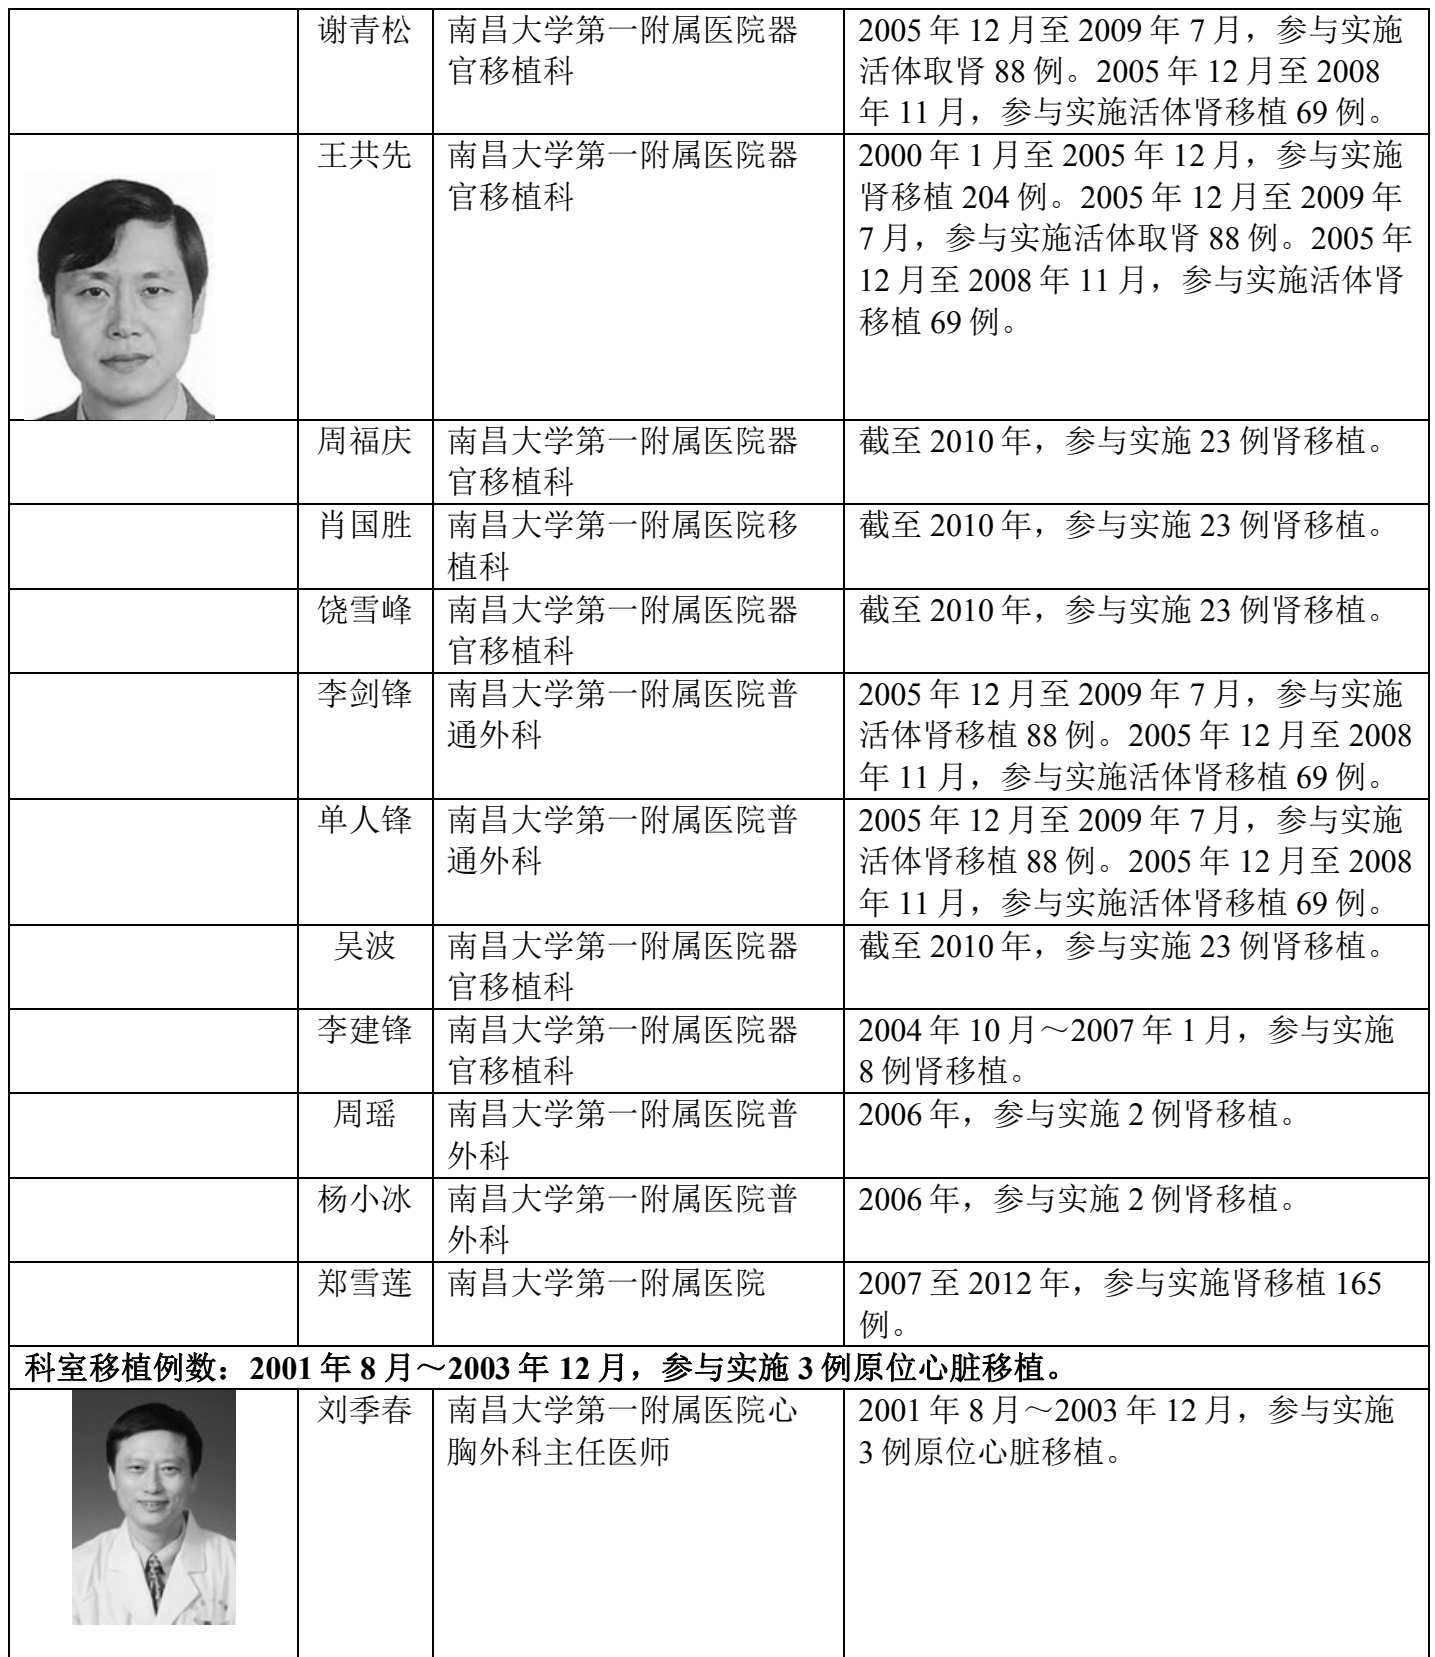 谢青松 南昌大学第一附属医院器 2005 年 12 月至 2009 年 7 月，参与实施
官移植科 活体取肾 88 例。2005 年 12 月至 2008
年 11 月，参与实施活体肾移植 69 例。
王共先 南昌大学第一附属医院器 2000 年 1 月至 2005 年 12 月，参与实施
官移植科 肾移植 204 例。2005 年 12 月至 2009 年
7 月，参与实施活体取肾 88 例。2005 年
12 月至 2008 年 11 月，参与实施活体肾
移植 69 例。
周福庆 南昌大学第一附属医院器 截至 2010 年，参与实施 23 例肾移植。
官移植科
肖国胜 南昌大学第一附属医院移 截至 2010 年，参与实施 23 例肾移植。
植科
饶雪峰 南昌大学第一附属医院器 截至 2010 年，参与实施 23 例肾移植。
官移植科
李剑锋 南昌大学第一附属医院普 2005 年 12 月至 2009 年 7 月，参与实施
通外科 活体肾移植 88 例。2005 年 12 月至 2008
年 11 月，参与实施活体肾移植 69 例。
单人锋 南昌大学第一附属医院普 2005 年 12 月至 2009 年 7 月，参与实施
通外科 活体肾移植 88 例。2005 年 12 月至 2008
年 11 月，参与实施活体肾移植 69 例。
吴波 南昌大学第一附属医院器 截至 2010 年，参与实施 23 例肾移植。
官移植科
李建锋 南昌大学第一附属医院器 2004 年 10 月～2007 年 1 月，参与实施
官移植科 8 例肾移植。
周瑶 南昌大学第一附属医院普 2006 年，参与实施 2 例肾移植。
外科
杨小冰 南昌大学第一附属医院普 2006 年，参与实施 2 例肾移植。
外科
郑雪莲 南昌大学第一附属医院 2007 至 2012 年，参与实施肾移植 165
例。
科室移植例数：2001 年 8 月～2003 年 12 月，参与实施 3 例原位心脏移植。
刘季春 南昌大学第一附属医院心 2001 年 8 月～2003 年 12 月，参与实施
胸外科主任医师 3 例原位心脏移植。